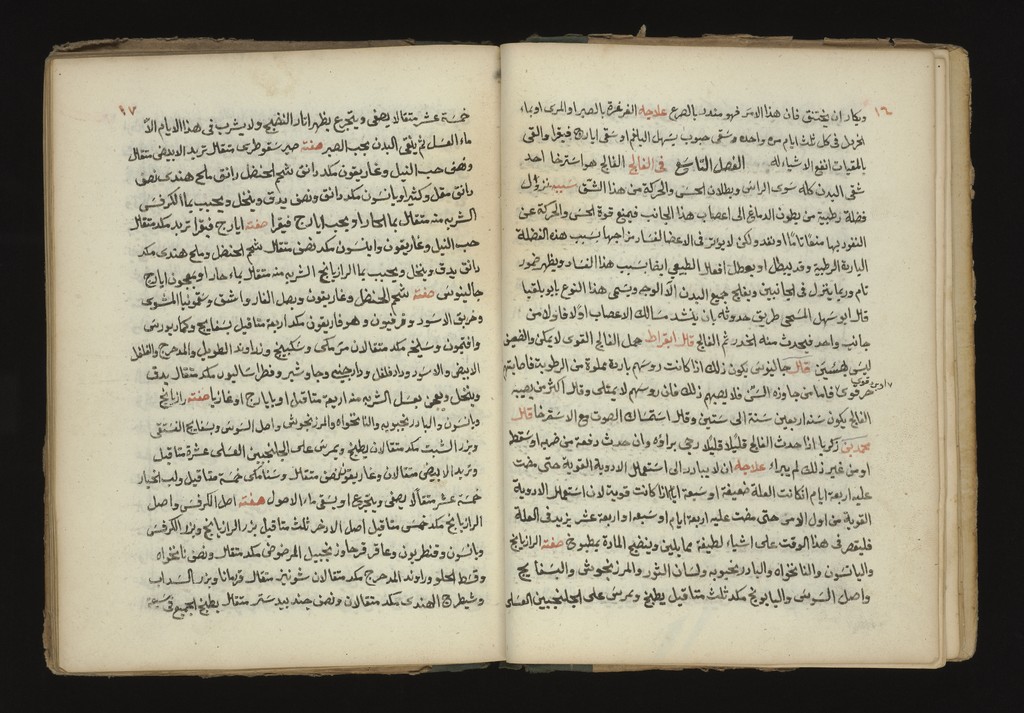 ١٦
ويكاد ان يختنق فان هذا الامر فهو منذر بالصرع علاجه الغرغرة بالصبر او المرى او بماء
الخردل فى كل ثلث ايام مره واحده وسقى حبوب يسهل البلغم او سقى ايارج فيقرا والقى
بالمقيات انفع الاشياء له الفصل التاسع فى الفالج الفالج هو استرخا احد
شقى البدن كله سوى الراس وبطلان الحس والحركة من هذا الشق سببه نزول
فضلة رطبية من بطون الدماغ الى اعصاب هذا الجانب فيمنع قوة الحس والحركة عن
النفوذ بها منعا تاما او نفذ ولكن لا يوثر فى الاعضا لفساد مزاجها بسبب هذه الفضلة
الباردة الرطبية وقد يبطل او يعطل افعال الطبيعى ايضا بسبب هذا الفساد ويظهر ضمور
تام وربما ينزل فى الجانبين ويفلج جميع البدن الا الوجه ويسمى هذا النوع بابوبلقيا
قال ابو سهل المسيحى طريق حدوثه بان ينسد مسالك الاعصاب اولا فاولا من
جانب واحد فيحدث منه الخدر ثم الفالج قال ابقراط حمل الفالج القوى لا يمكن والضعيف
ليس بهين قال جالينوس يكون ذلك اذا كانت روسهم باردة مملوة من الرطوبة فاما
فاما من جاوزه السن فلا يصبهم ذلك فان روسهم لا يمتلى وقال اكثر من يصيبه
الفالج يكون سنه اربعين سنة الى ستين وقال استمساك الصوت مع الاسترخا قال
محمد بن زكريا اذا حدث الفالج قليلا قليلا رجى براؤه وان حدث دفعة من ضربه او سقط
او من غير ذلك لم يبراء علاجه ان لا يبادر الى استعمال الادوية القوية حتى مضت
عليه اربعة ايام ان كانت العلة ضعيفة او سبعة ايام اذا كانت قوية لان استعمال الادوية
القوية من اول الامر حتى مضت عليه اربعة ايام او سبعه او اربعة عشر يزيد فى العلة
فليقصر فى هذا الوقت على اشياء لطيفة مما يلين وينضج المادة بمطبوخ صفته الرازيانج
والبانسون والنانخواه والبادرنجبويه ولسان الثور والمرزنجوش والبسفايج
واصل السوس والبابونج مكد ثلث مثاقيل يطبخ ويمرس على الجلنجبين العسلى
١٧
خمسة عشر مثقالا يصفى ويتجرع يظهر اثار النضج ولا يشرب فى هذا الايام الا
ماء العسل ثم ينقى البدن بحب الصبر صفته صبر سقوطرى مثقال تربد الابيض مثقال
ونصف حب النيل وغاريقون مكد دانق شحم الحنظل دانق ملح هندى نصف
دانق مقل وكثيرا وبانسون مكد دانق ونصف يدق وينخل ويحبب بماء الكرفس
الشربه منه مثقال بماء الحار او يحب ايارج فيقرا صفته ايارج فيقرا تربد مكد مثقال
حب النيل وغاريقون وانيسون مكد نصف مثقال شحم الحنظل وملح هندى مكد
دانق يدق وينخل ويحبب بماء الرازيانج الشربه منه مثقال بماء حار او بمعجون ايارج
جالينوس صفته شحم الحنظل وغاريقون وبصل الفار واشق وسقمونيا المشوى
وخربق الاسود وفرفيون وهوفاريقون مكد اربعة مثاقيل بسفايج وكمادريوس
وافتيمون وسليخه مكد مثقالان مر مكى وسكبينج وزراوند الطويل والمدحرج والفلفل
الابيض والاسود ودار فلفل ودارچينى وجاوشير وفطراساليون مكد مثقال يدق
وينخل ويعجن بعسل الشربه منه اربعة مثاقيل او بايارج لوغاذيا صفته رازيانج
وبانسون والبادرنجبويه والنانخواه والمرزنجوش واصل السوس وبسفايج الفستقى
وبزر الشبت مكد مثقالان يطبخ ويمرس على الجلنجبين العسلى عشرة مثاقيل
وتربد الابيض مثقالان وغاريقون نصف مثقال وسنا مكى خمسة مثاقيل ولب الخيار
خمسة عشر مثقالا يصفى ويتجرع او يسقى ماء الاصول صفته اصل الكرفس واصل
الرازيانج مكد خمس مثاقيل اصل الاذخر ثلث مثاقيل بزر الرازيانج وبزر الكرفس
وبانسون وقنطريون وعاقر قرحا وزنجبيل المرضوض مكد مثقال ونصف نانخواه
وقسط الحلو وراوند المدحرج مكد مثقالان شونيز مثقال قردمانا وبزر السداب
وشيطرج الهندى مكد مثقالان ونصف جند بيدستر مثقال يطبخ الجميع فى